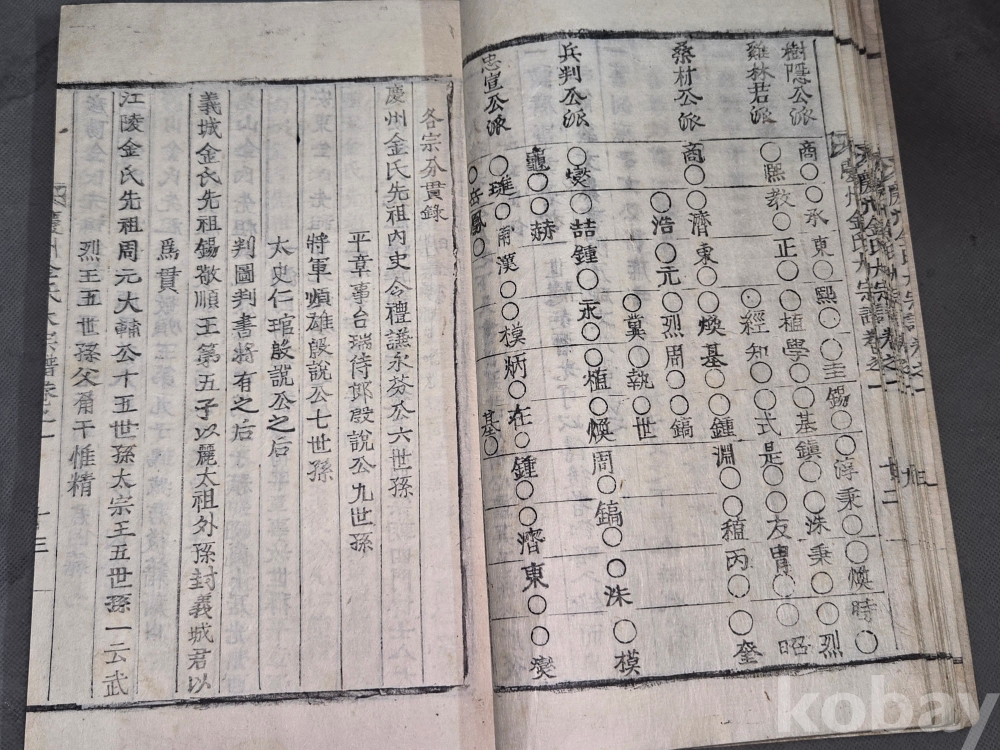 慶州金氏大宗譜卷之一
十二
樹隱公派
商○○承東○○熙○圭錫○○淳秉○○煥時○
雞林君派
○熙教○正○○植學○○基鎭○○洙秉○○烈
○經知○○式是○○友胄○○昭
桑村公派
商○○濟東○○煥基○○鍾淵○○稙丙○○奎
浩○○元○烈周○○鎬
○冀執○○世
兵判公派
○燮○喆鍾○○永○植○煥周○鎬○○洙○模
龜○○赫
忠宣公派
○璡○甯漢○○模炳○在○鍾○○濟東○○燮
○鳳○基○
各宗分貫錄
慶州金氏先祖內史令禮謙永芬公六世孫
平章事台瑞侍郎殷說公九世孫
將軍順雄殷說公七世孫
太史仁琯殷說公之后
判圖判書將有之后
義城金氏先祖錫敬順王第五子以麗太祖外孫封義城君以
爲貫
江陵金氏先祖周元大輔公十五世孫太宗王五世孫一云武
烈王五世孫父角干惟精
慶州金氏大宗譜卷之一
十三
kobay